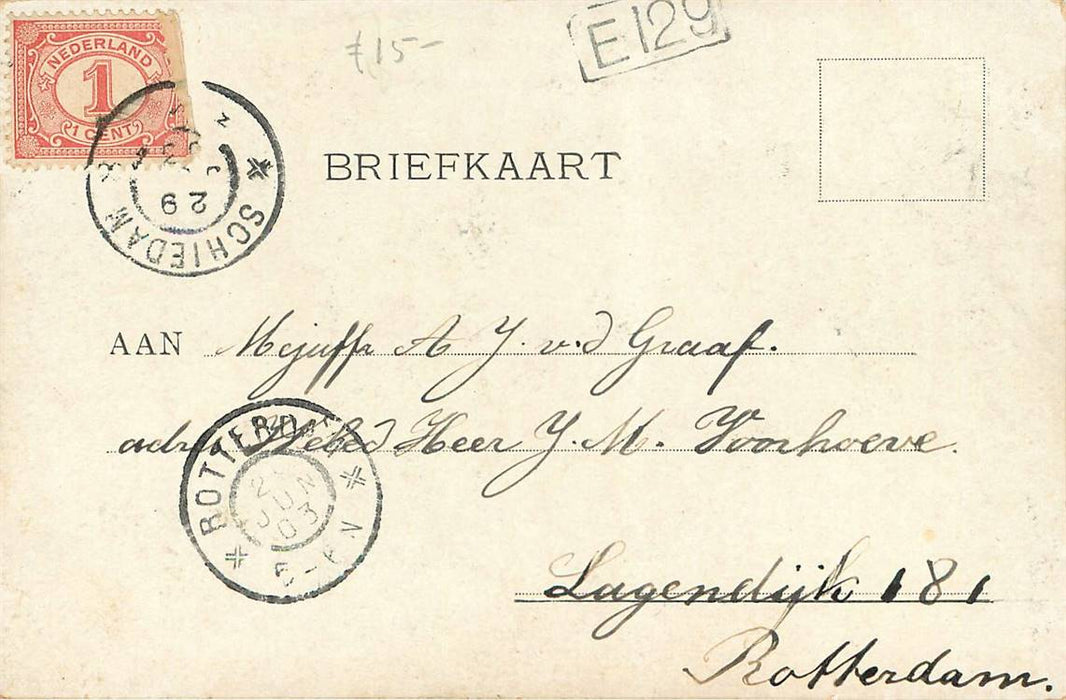 NEDERLAND
1
1 CENT
£15-
E129
SCHIEDAM
29
BRIEFKAART
AAN Mejuffr A J. v.d Graaf.
Heer J. M. Voorhoeve.
ROTTERDAM
JUN
03
5-6N
Lagendijk 181
Rotterdam.